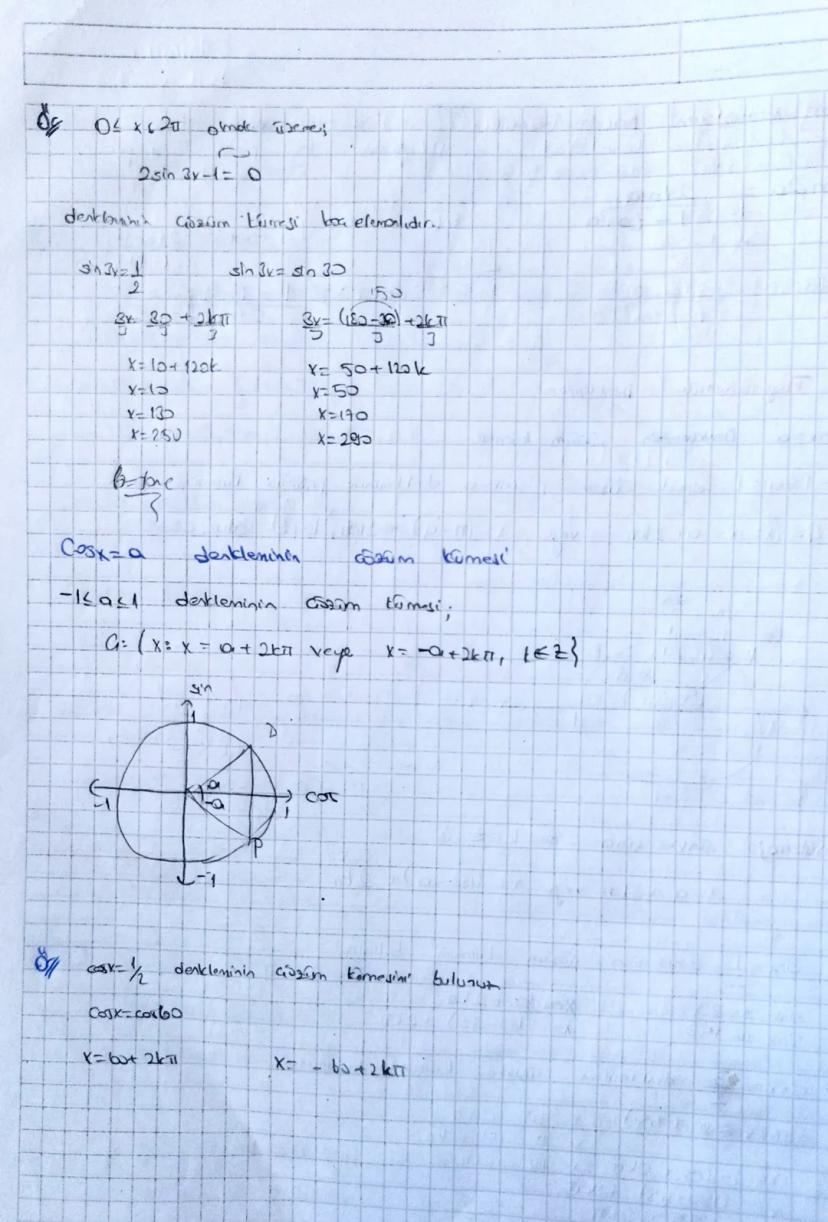 Ör
0 ≤ x < 2π olmak üzere;
2sin 3x-1= 0
denkleminin çözüm kümesi kaç elemanlıdır.
sin3x=1/2 sin 3x= sin 30
150
3x/3 = 30/3 + 2kπ/3 3x/3 = (180-30)/3 + 2kπ/3
x=10+120k x= 50+120k
x=10 x=50
x=130 x=170
x=250 x=290
6 tane
Cosx=a denkleminin çözüm kümesi
-1≤a≤1 denkleminin çözüm kümesi;
Ç: { x: x = a + 2kπ veya x= -a+2kπ, k∈Z}
sin
1
D
a
-1 -a 1 cos
P
-1
Ör cosx=1/2 denkleminin çözüm kümesini bulunuz
Cosx=cos60
x=60+ 2kπ x= -60+2kπ